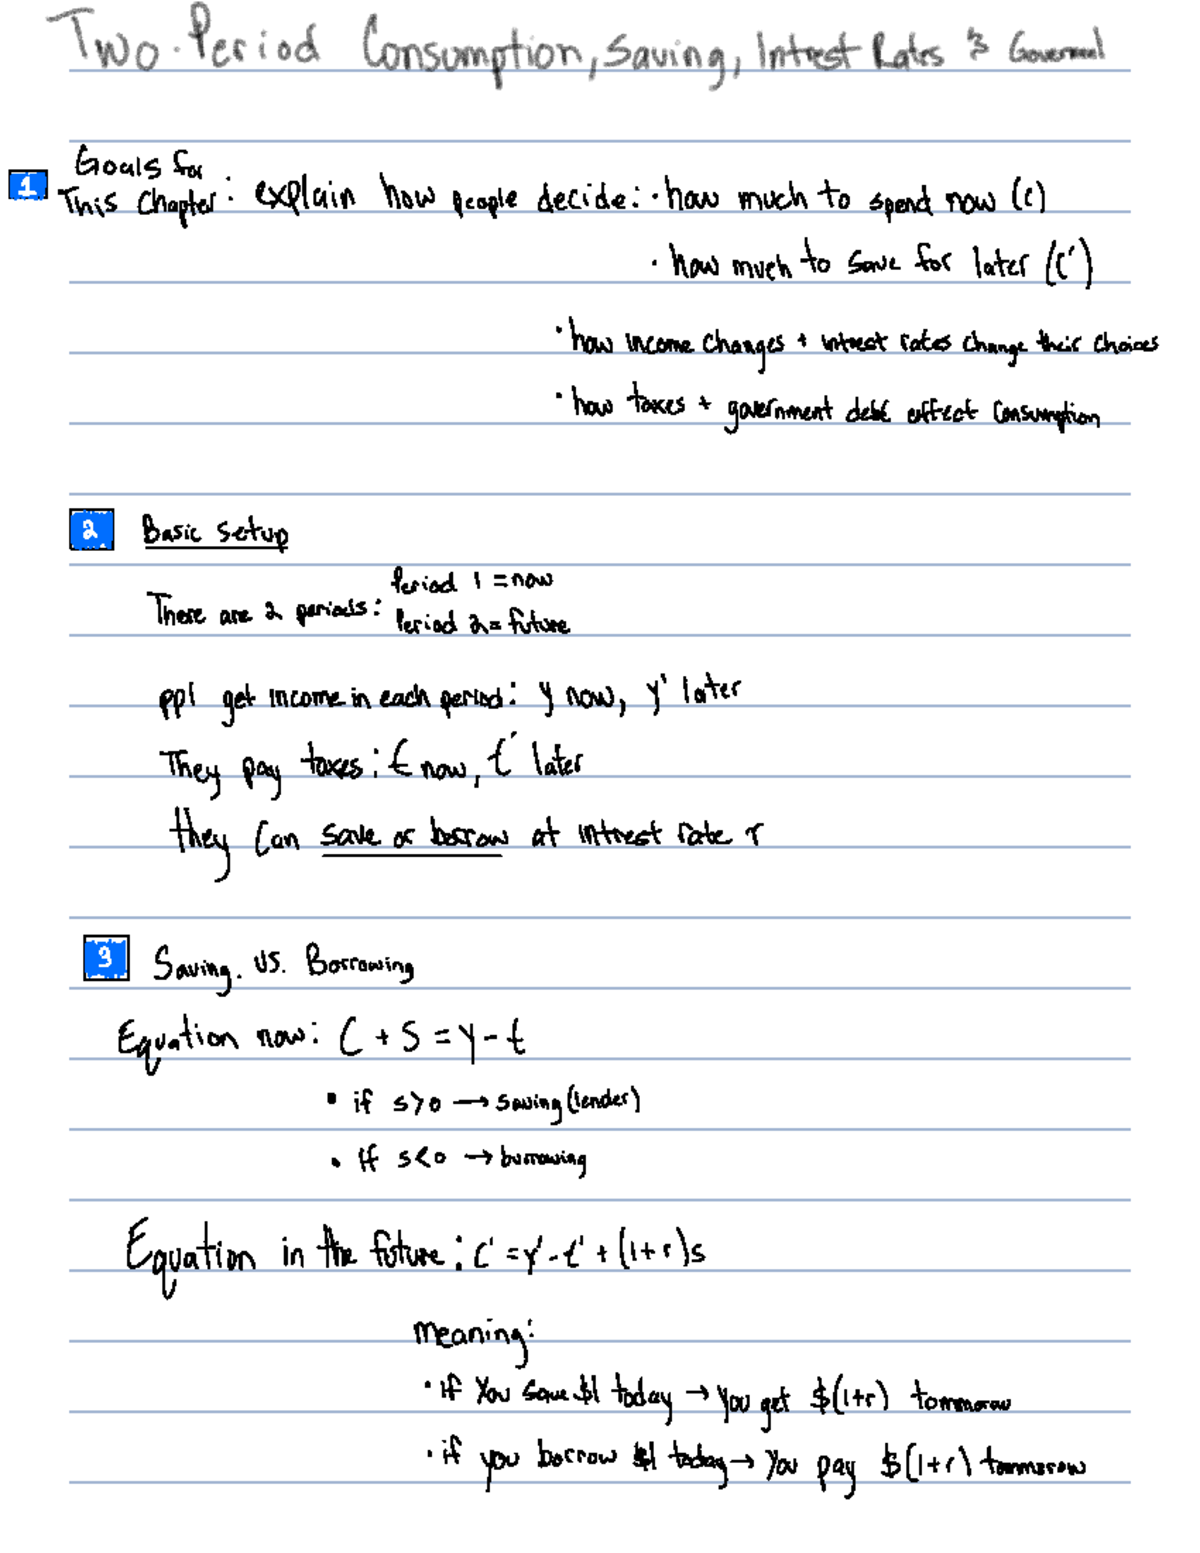 Two-Period Consumption, Saving, Intrest Rates &
1 Goals for
This Chapter: explain how people decide: · how much to spend now (c)
· how much to save for later (c')
· how income changes + intrest rates change their choices
· how taxes + government debt effect consumption
2 Basic setup
There are 2 periods: Period 1 = now
Period 2 = future
ppl get income in each period: y now, y' later
They pay taxes: t now, t' later
they can save or borrow at intrest rate r
3 Saving. vs. Borrowing
Equation now: C + S = Y - t
• if s>0 → saving (lender)
• If s<0 → burrowing
Equation in the future: C' = Y' - t' + (1+r)s
meaning:
· If You save $1 today → you get $(1+r) tommorow
· if you borrow $1 today → You pay $(1+r) tommorow